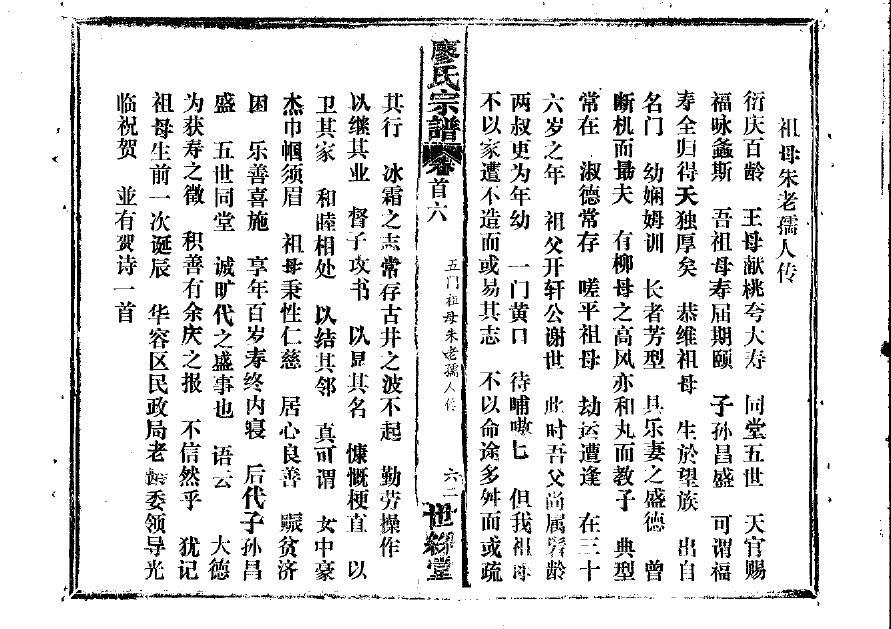 祖母朱老孺人传
衍庆百龄 王母献桃夸大寿 同堂五世 天官赐
福咏螽斯 吾祖母寿届期颐 子孙昌盛 可谓福
寿全归得天独厚矣 恭维祖母 生於望族 出自
名门 幼娴姆训 长者芳型 具乐妻之盛德 曾
断机而勗夫 有柳母之高风亦和丸而教子 典型
常在 淑德常存 嗟乎祖母 劫运遭逢 在三十
六岁之年 祖父开轩公谢世 此时吾父尚属髫龄
两叔更为年幼 一门黄口 待哺嗷七 但我祖母
不以家遭不造而或易其志 不以命途多舛而或疏
廖氏宗谱 卷首六 五门祖母朱老孺人传 六二 世䌽堂
其行 冰霜之志常存古井之波不起 勤劳操作
以继其业 督子攻书 以显其名 慷慨梗直 以
卫其家 和睦相处 以结其邻 真可谓 女中豪
杰巾帼须眉 祖母秉性仁慈 居心良善 赈贫济
困 乐善喜施 享年百岁寿终内寝 后代子孙昌
盛 五世同堂 诚旷代之盛事也 语云 大德
为获寿之徵 积善有余庆之报 不信然乎 犹记
祖母生前一次诞辰 华容区民政局老龄委领导光
临祝贺 並有贺诗一首